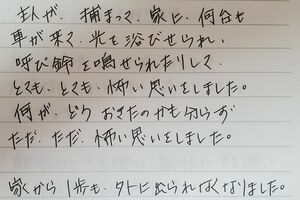 主人が、捕まって、家に、何台も
車が来て、光を浴びせられ、
呼び鈴を鳴せられたりして、
とても、とても、怖い思いをしました。
何が、どうおきたのかも分らず
ただ、ただ、怖い思いをしました。
家から1歩も、外に出られなくなりました。